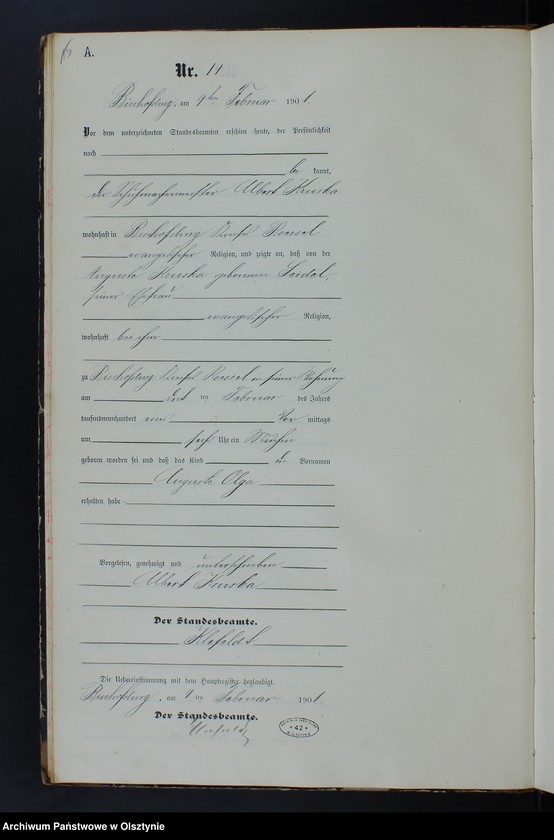 A.
Nr. 11
Bischofsburg, am 9ten Februar 1901.
Vor dem unterzeichneten Standesbeamten erschien heute, der Persönlichkeit
nach
be kannt,
der Schuhmachermeister Albert Kruska
wohnhaft in Bischofsburg Kreises Roessel
evangelischer Religion, und zeigte an, daß von der
Auguste Kruska geborenen Seidel,
seiner Ehefrau
evangelischer Religion,
wohnhaft bei ihm
zu Bischofsburg Kreises Roessel in seiner Wohnung
am ten Februar des Jahres
tausendneunhundert eins Vor mittags
um sechs Uhr ein Mädchen
geboren worden sei und daß das Kind die Vornamen
Auguste Olga
erhalten habe
Vorgelesen, genehmigt und unterschrieben
Albert Kruska
Der Standesbeamte.
Klefeldt
Die Uebereinstimmung mit dem Hauptregister beglaubigt.
Bischofsburg, am 9 ten Februar 1901.
Der Standesbeamte.
42
Archiwum Państwowe w Olsztynie